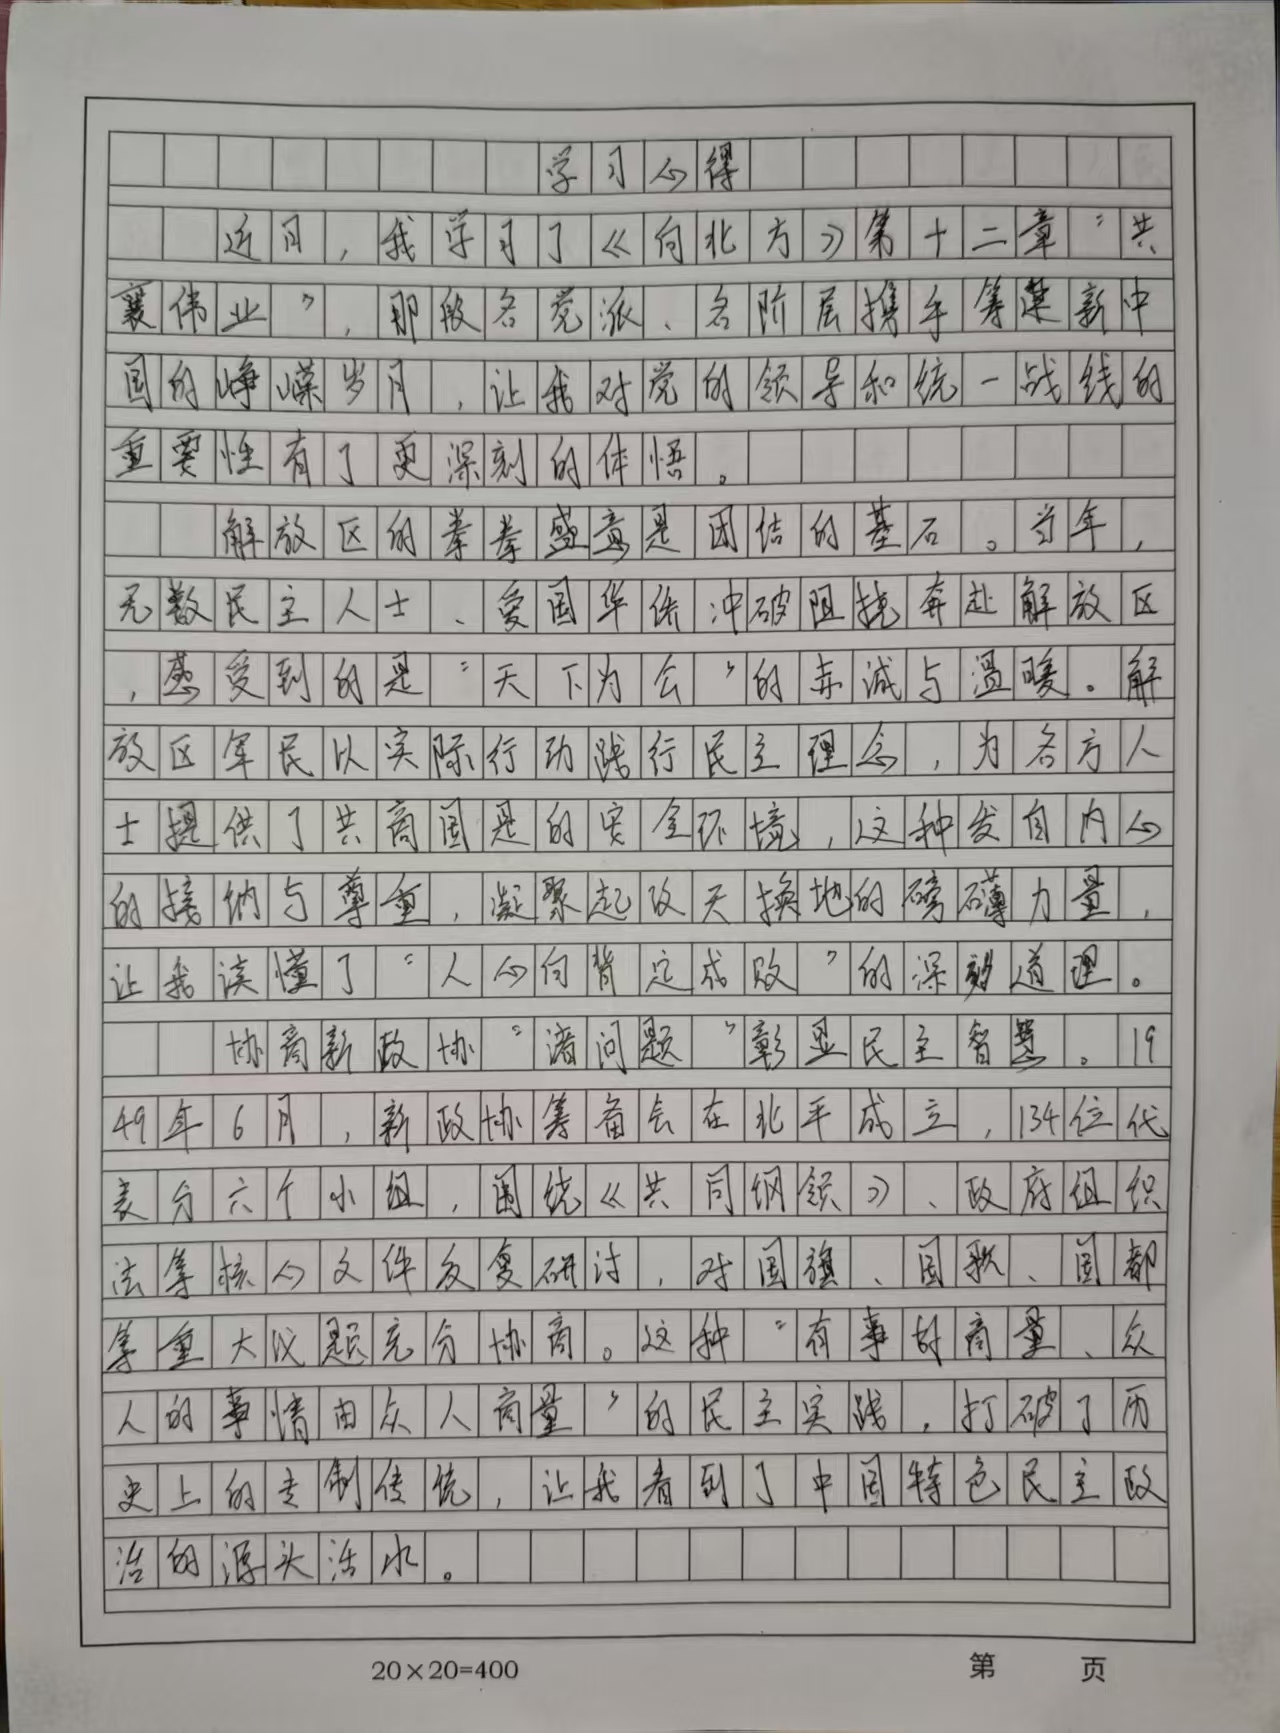 学习心得
近日，我学习了《向北方》第十二章“共
襄伟业”，那段各党派、各阶层携手筹谋新中
国的峥嵘岁月，让我对党的领导和统一战线的
重要性有了更深刻的体悟。
解放区的拳拳盛意是团结的基石。当年，
无数民主人士、爱国华侨冲破阻挠奔赴解放区
，感受到的是“天下为公”的赤诚与温暖。解
放区军民以实际行动践行民主理念，为各方人
士提供了共商国是的安全环境，这种发自内心
的接纳与尊重，凝聚起改天换地的磅礴力量，
让我读懂了“人心向背定成败”的深刻道理。
协商新政协“诸问题”彰显民主智慧。19
49年6月，新政协筹备会在北平成立，134位代
表分六个小组，围绕《共同纲领》、政府组织
法等核心文件反复研讨，对国旗、国歌、国都
等重大议题充分协商。这种“有事好商量、众
人的事情由众人商量”的民主实践，打破了历
史上的专制传统，让我看到了中国特色民主政
治的源头活水。
20×20=400
第 页